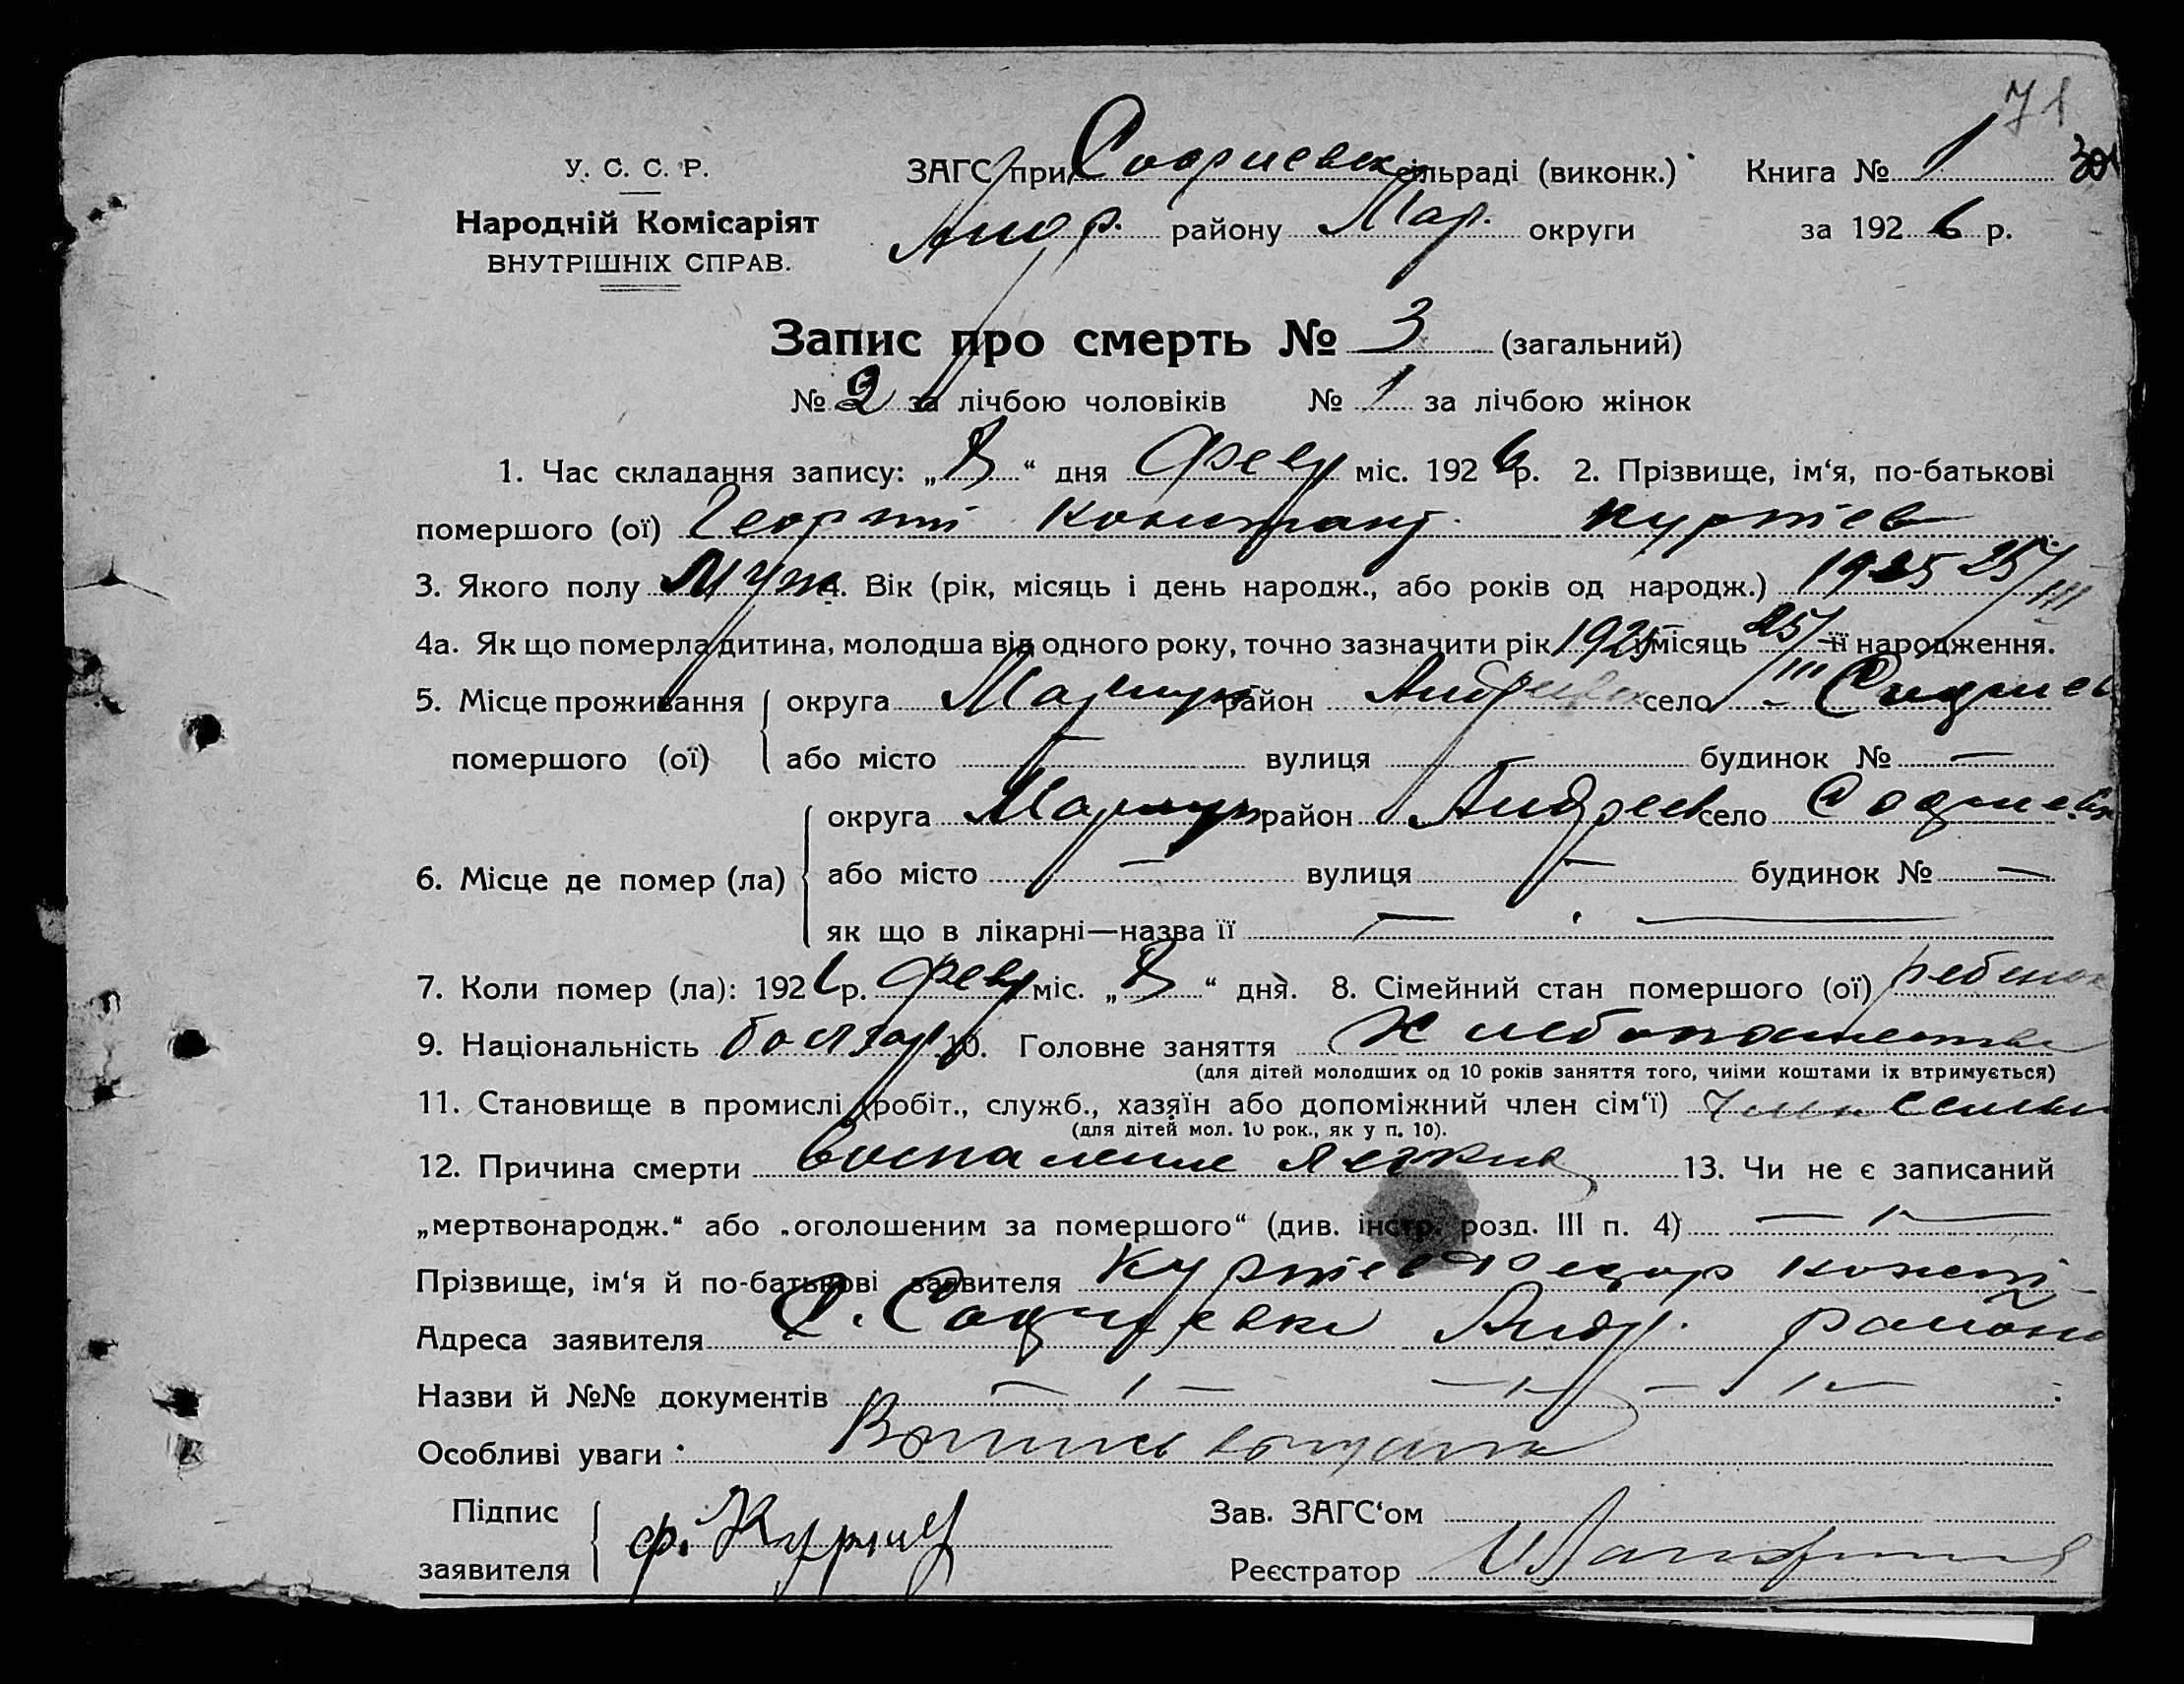 71
У. С. С. Р.
ЗАГС при Софиевск сільраді (виконк.) Книга № 1
Народній Комісаріят
Андр. району Мар. округи за 1926 р.
ВНУТРІШНІХ СПРАВ.
Запис про смерть № 3 (загальний)
№ 2 за лічбою чоловіків № 1 за лічбою жінок
1. Час складання запису: „8“ дня Февр міс. 1926 р. 2. Прізвище, ім‘я, по-батькові
помершого (ої) Георгий Констант. Куртев
3. Якого полу Муж 4. Вік (рік, місяць і день народж., або років од народж.) 1925 25/III
4а. Як що померла дитина, молодша від одного року, точно зазначити рік 1925 і місяць 25/III її народження.
5. Місце проживання округа Мариуп район Андреевск село Софиев
помершого (ої) або місто — вулиця — будинок № —
округа Мариуп район Андреев село Софиевк
6. Місце де помер (ла) або місто — вулиця — будинок № —
як що в лікарні—назва її —
7. Коли помер (ла): 1926 р. Февр міс. „8“ дня. 8. Сімейний стан помершого (ої) ребенок
9. Національність болгар 10. Головне заняття Хлебопашество
(для дітей молодших од 10 років заняття того, чиїми коштами їх втримується)
11. Становище в промислі (робіт., служб., хазяїн або допоміжний член сім‘ї) член семьи
(для дітей мол. 10 рок., як у п. 10).
12. Причина смерти Воспаление легких 13. Чи не є записаний
„мертвонародж.“ або „оголошеним за помершого“ (див. інстр. розд. III п. 4) —
Прізвище, ім‘я й по-батькові заявителя Куртев Федор Конст
Адреса заявителя С. Софиевка Андр. района
Назви й №№ документів —
Особливі уваги
Підпис Зав. ЗАГС‘ом
ф. Куртев
заявителя Реєстратор